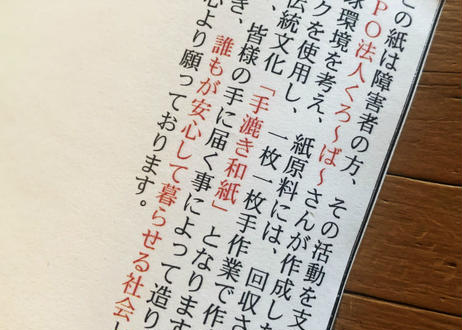 この紙は障害者の方、その活動を支
PO法人くろ～ば～さんが作成した
球環境を考え、紙原料には、回収さ
クを使用し、一枚一枚手作業で作
伝統文化「手漉き和紙」となります
、皆様の手に届く事によって造り
き、誰もが安心して暮らせる社会
心より願っております。